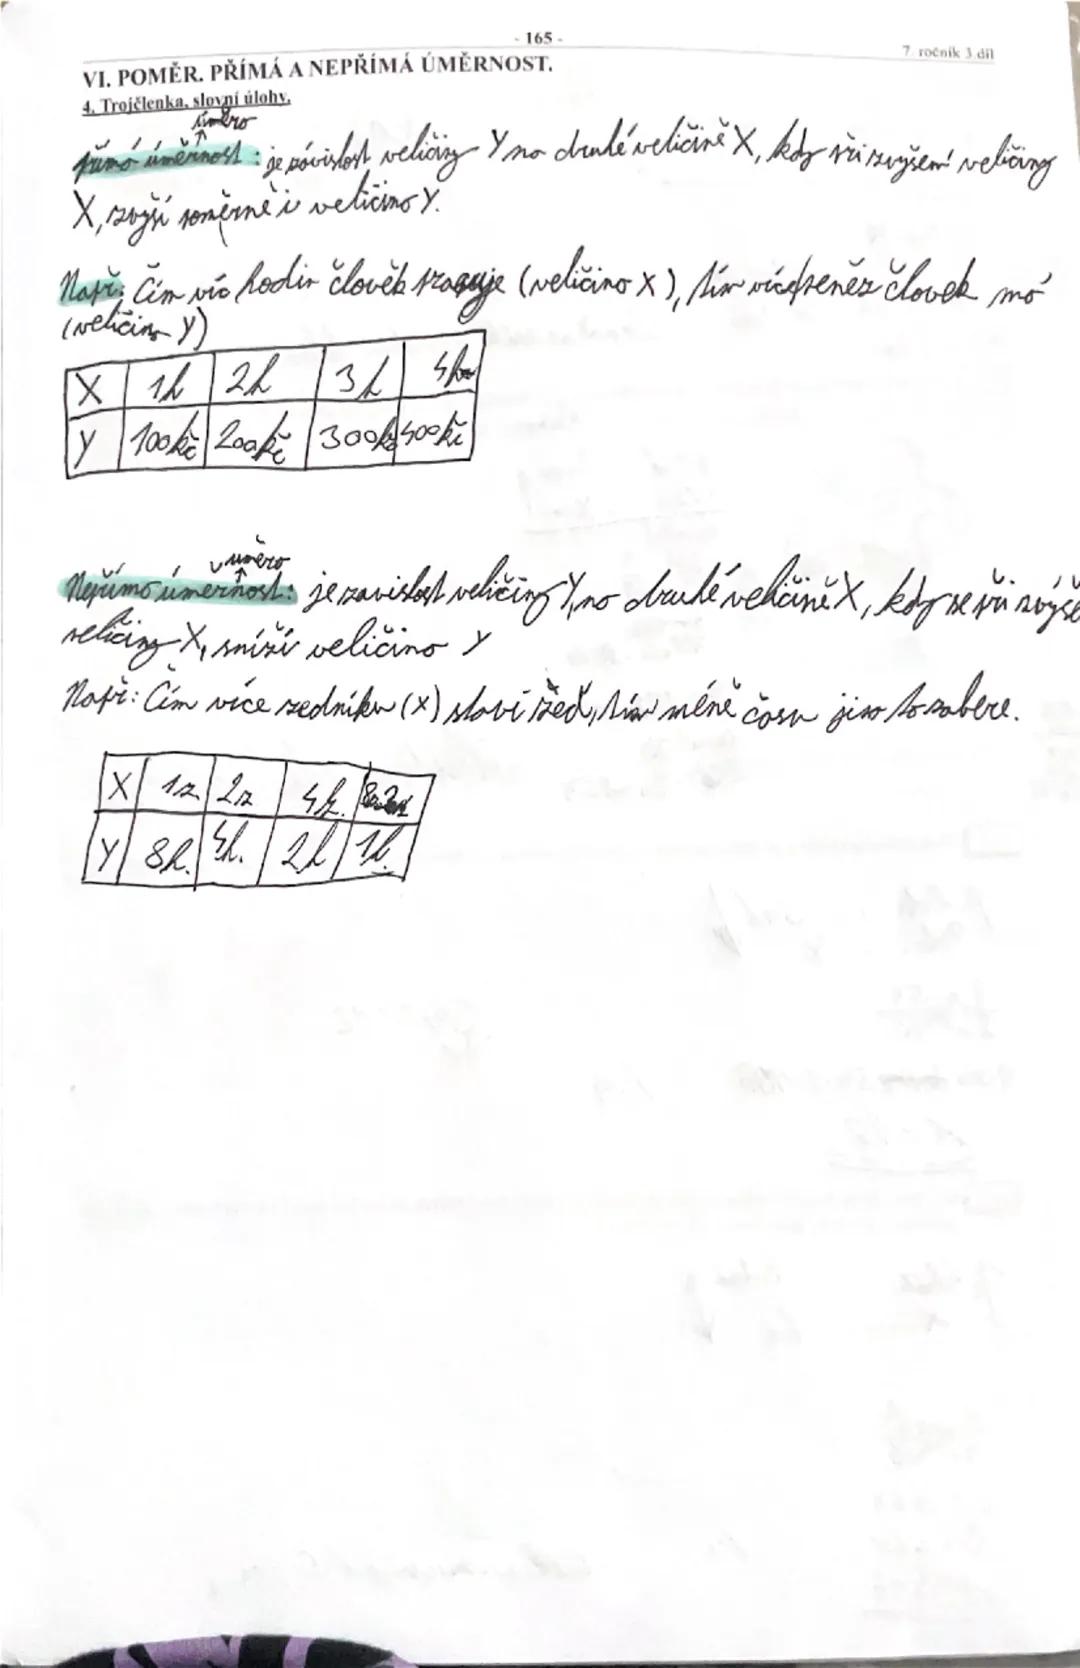 - 165 -
7. ročník 3.díl
VI. POMĚR. PŘÍMÁ A NEPŘÍMÁ ÚMĚRNOST.
4. Trojčlenka, slovní úlohy.
úměra
přímá úměrnost : je závislost veličiny Y na druhé veličině X, kdy při zvýšení veličiny
X, zvýší poměrně i veličina Y.
Např: Čím víc hodin člověk pracuje (veličina X), tím více peněz človek má
(veličina Y)
X 1h 2h 3h 4h
Y 100kč 200kč 300kč 400kč
úměra
Nepřímá úmernost: je zavislost veličiny Y, na druhé veličině X, kdy se při zvýše
veličiny X, sníží veličina Y
Např: Čím více zedníku (X) staví zeď, tím méně času jim to zabere.
X 1z 2z 4z. 8z
Y 8h. 4h. 2h 1h.